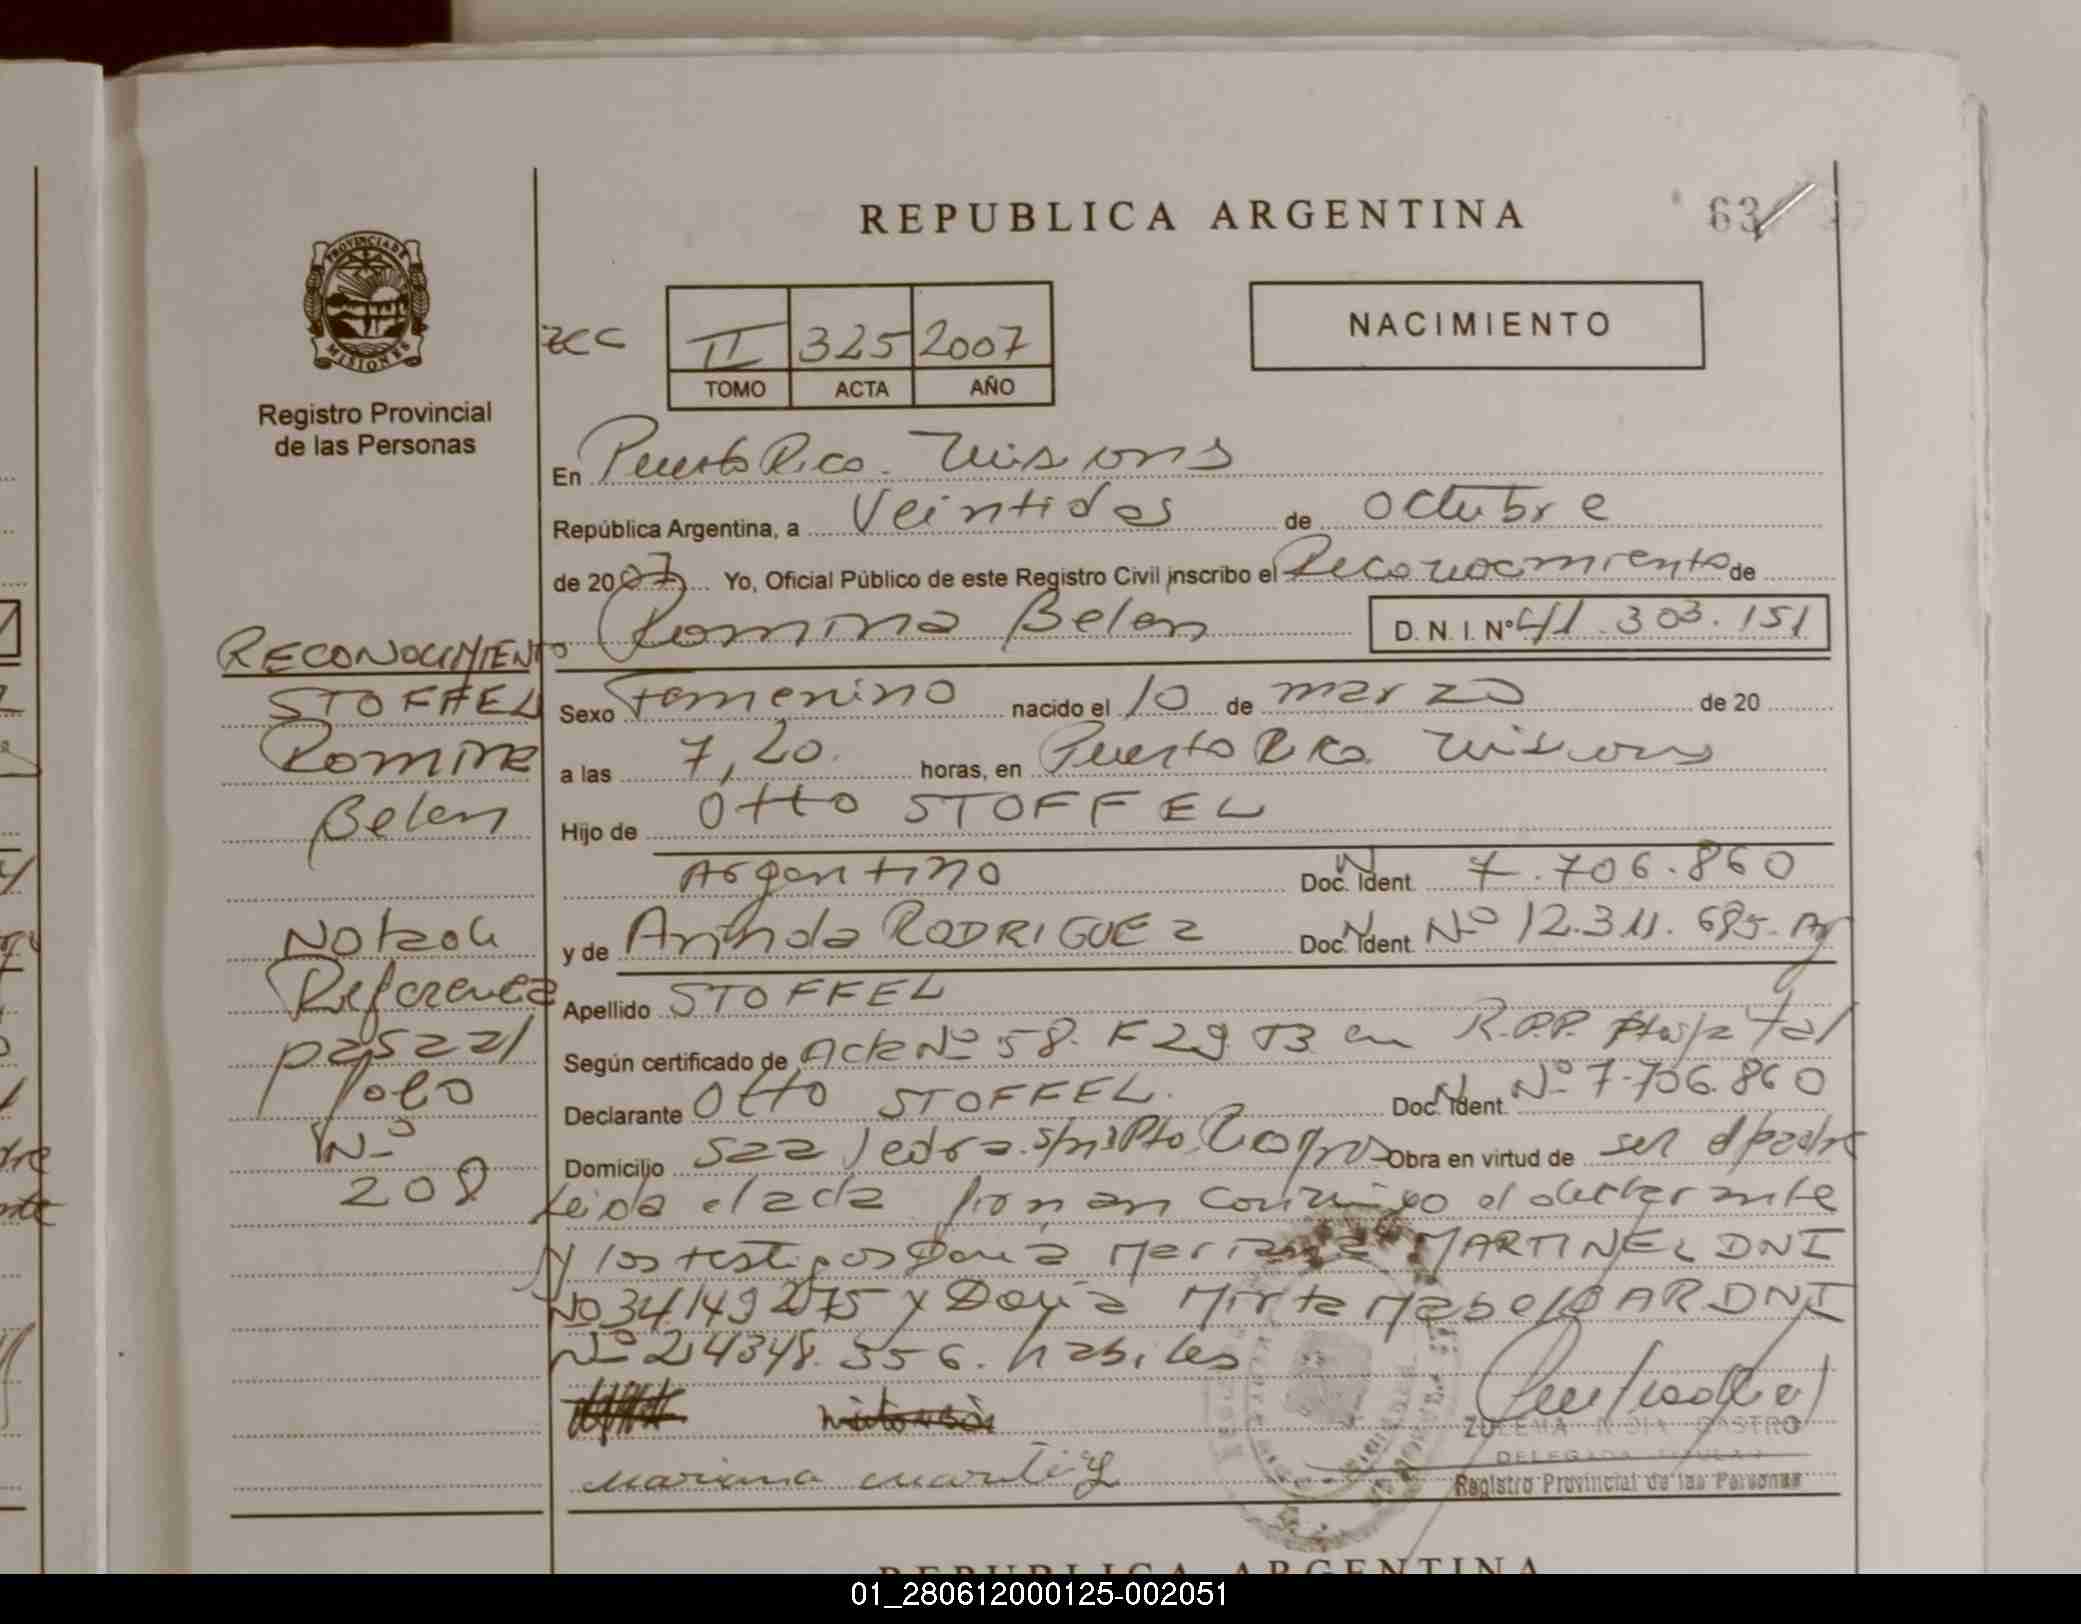 REPUBLICA ARGENTINA
63
PROVINCIA DE
MISIONES
Registro Provincial
de las Personas
II 325 2007
TOMO ACTA AÑO
NACIMIENTO
En Puerto Rico. Misiones
República Argentina, a Veintidos de octubre
de 2007 Yo, Oficial Público de este Registro Civil inscribo el Reconocimiento de
Romina Belen D. N. I. Nº 41.303.151
Sexo Femenino nacido el 10 de marzo de 20
a las 7,20. horas, en Puerto Rico. Misiones
Hijo de Otto STOFFEL
Argentino Doc. Ident. 7.706.860
y de Arinda RODRIGUEZ Doc. Ident. Nº 12.311.685. Arg
Apellido STOFFEL
Según certificado de Acta Nº 58. F 29 T3 en R.P.P. Hospital
Declarante Otto STOFFEL. Doc. Ident. Nº 7.706.860
Domicilio Obra en virtud de ser el padre
Leida el acta firman conmigo el declarante
y los testigos Doña Mariana MARTINEZ DNI
Nº 34.149.275 y Doña Mirta Mabel DNI
Nº 24348.356. habiles
mariana martinez
ZULEMA CASTRO
DELEGADA TITULAR
Registro Provincial de las Personas
RECONOCIMIENTO
STOFFEL
Romina
Belen
Nota de
Referencia
pasa al
folio
Nº
208
REPUBLICA ARGENTINA
01_280612000125-002051